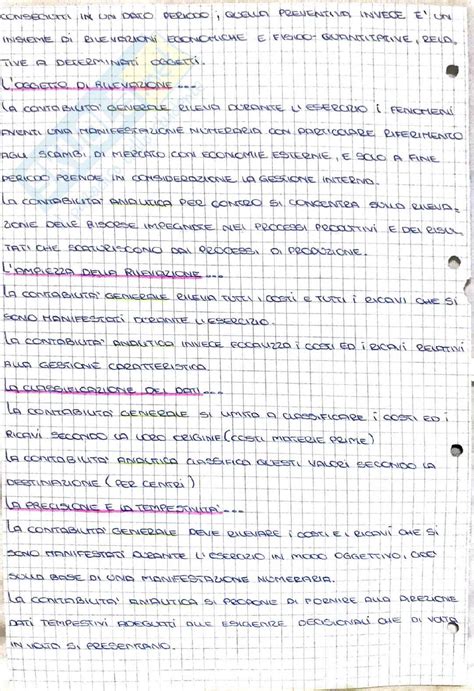 CONSEGUITI IN UN DATO PERIODO, QUELLA PREVENTIVA INVECE E' UN
INSIEME DI RILEVAZIONI ECONOMICHE E FISICO-QUANTITATIVE, RELA_
TIVE A DETERMINATI OGGETTI.
L'OGGETTO DI RILEVAZIONE...
LA CONTABILITA' GENERALE RILEVA DURANTE L'ESERCIZIO I FENOMENI
AVENTI UNA MANIFESTAZIONE NUMERARIA CON PARTICOLARE RIFERIMENTO
AGLI SCAMBI DI MERCATO CON ECONOMIE ESTERNE, E SOLO A FINE
PERIODO PRENDE IN CONSIDERAZIONE LA GESTIONE INTERNA.
LA CONTABILITA' ANALITICA PER CONTRO SI CONCENTRA SULLA RILEVA_
ZIONE DELLE RISORSE IMPEGNATE NEI PROCESSI PRODUTTIVI E DEI RISUL_
TATI CHE SCATURISCONO DAI PROCESSI DI PRODUZIONE.
L'AMPIEZZA DELLA RILEVAZIONE...
LA CONTABILITA' GENERALE RILEVA TUTTI I COSTI E TUTTI I RICAVI CHE SI
SONO MANIFESTATI DURANTE L'ESERCIZIO.
LA CONTABILITA' ANALITICA INVECE FOCALIZZA I COSTI ED I RICAVI RELATIVI
ALLA GESTIONE CARATTERISTICA.
LA CLASSIFICAZIONE DEI DATI...
LA CONTABILITA' GENERALE SI LIMITA A CLASSIFICARE I COSTI ED I
RICAVI SECONDO LA LORO ORIGINE (COSTI MATERIE PRIME)
LA CONTABILITA' ANALITICA CLASSIFICA QUESTI VALORI SECONDO LA
DESTINAZIONE (PER CENTRI)
LA PRECISIONE E LA TEMPESTIVITA'...
LA CONTABILITA' GENERALE DEVE RILEVARE I COSTI E I RICAVI CHE SI
SONO MANIFESTATI DURANTE L'ESERCIZIO IN MODO OGGETTIVO, CIOE'
SULLA BASE DI UNA MANIFESTAZIONE NUMERARIA.
LA CONTABILITA' ANALITICA SI PROPONE DI FORNIRE ALLA DIREZIONE
DATI TEMPESTIVI ADEGUATI ALLE ESIGENZE DECISIONALI CHE DI VOLTA
IN VOLTA SI PRESENTANO.